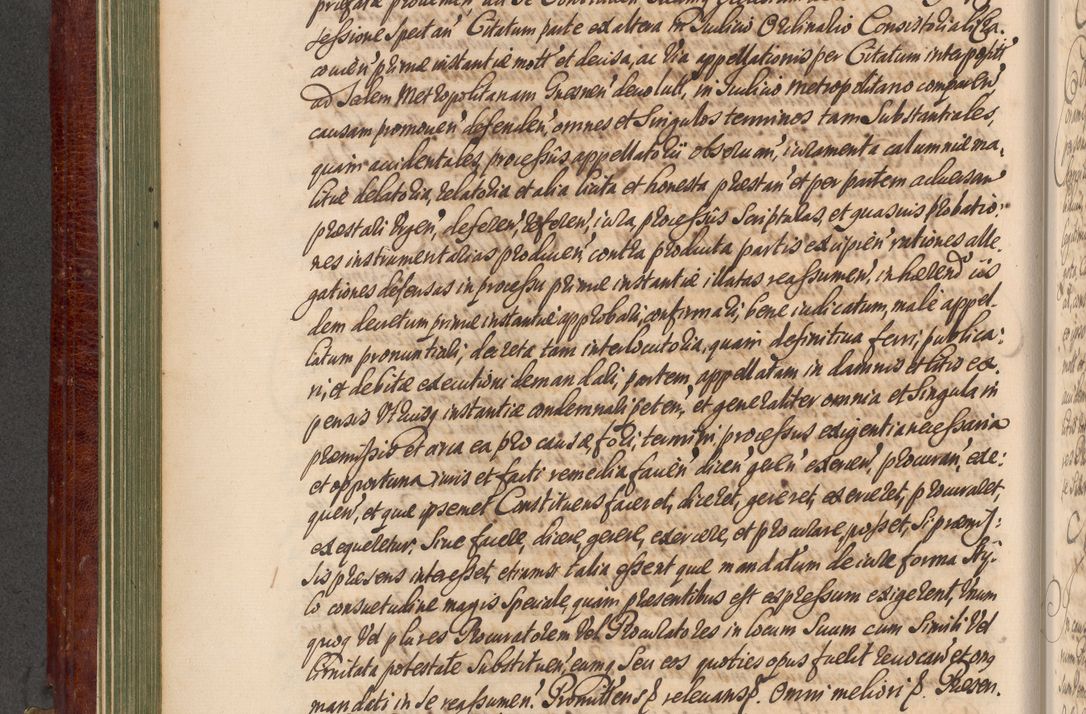 sessione spectan' Citatum parte ex altera in Iudicio Ordinario Consistoriali Cra-
covien' primæ instantiæ mott' et decisa, ac via appellationis per Citatum interposit'
ad Sedem Metropolitanam Gnesnen' devolut', in Iudicio metropolitano comparen'
causam promoven' defenden', omnes et Singulos terminos tam Substantiales,
quam accidentales, processûs appellatorii observan', iuramenta calumniæ ma-
litiæ delatoria, relatoria et alia licita et honesta præstan' et per partem adversan'
præstari exigen', deferen', referen', iura, processûs Scripturas, et quasvis probatio-
nes instrumentalias producen', contra producta partis excipien' rationes alle
gationes defensas in processu primæ instantiæ illatas reassumen', inhærend' iis
dem decretum primæ instantiæ approbari, confirmari, bene iudicatum, male appel
latum pronuntiari, decreta tam interlocutoria, quam definitiva ferri, publica-
ri, et debitæ executioni demandari, partem, appellatam in damnis et litis ex-
pensis utriusq instantiæ condemnari peten', et generaliter omnia et Singula in
præmissis et circa ea pro causæ, fori, termini, processus exigentia necessaria
et opportuna iuris et facti remedia facien' dicen' geren' exercen', procuran', exe-
quen', et quæ ipsemet Constituens faceret, diceret, gereret, exerceret, procuraret,
exequeretur. Sive facere, dicere, gerere, exercere, et procurare, posset, Si præmis-
sis præsens interesset, etiamsi talia essent quæ mandatum de iure forma Sty-
lo consuetudine magis Speciale, quam præsentibus est expressum exigerent, Unum
quoq Vel plures Procuratorem Vel Procuratores in locum Suum cum Simili Vel
limitata potestate Substituen', eumq Seu eos quoties opus fuerit revocan' et onq
mandati in Se reassumen'. Promittens p. relevans p. Omni meliori p. Præsen.